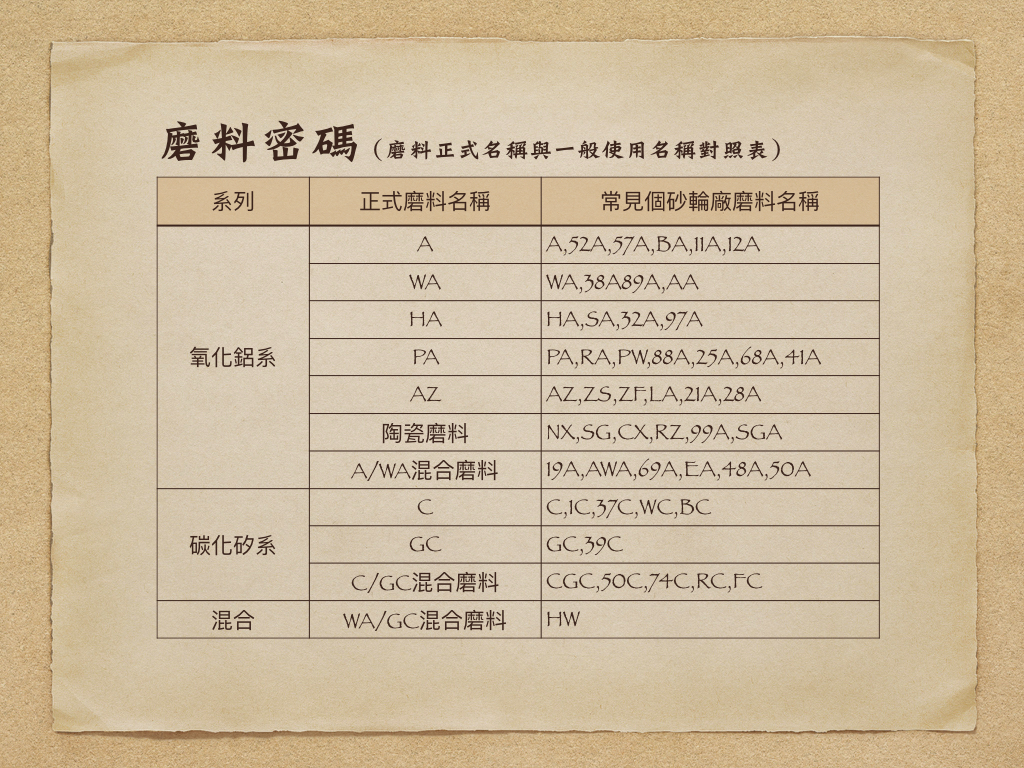 磨料密碼(磨料正式名稱與一般使用名稱對照表)
系列 正式磨料名稱 常見個砂輪廠磨料名稱
氧化鋁系 A A,52A,57A,BA,11A,12A
WA WA,38A89A,AA
HA HA,SA,32A,97A
PA PA,RA,PW,88A,25A,68A,41A
AZ AZ,ZS,ZF,LA,21A,28A
陶瓷磨料 NX,SG,CX,RZ,99A,SGA
A/WA混合磨料 19A,AWA,69A,EA,48A,50A
碳化矽系 C C,1C,37C,WC,BC
GC GC,39C
C/GC混合磨料 CGC,50C,74C,RC,FC
混合 WA/GC混合磨料 HW